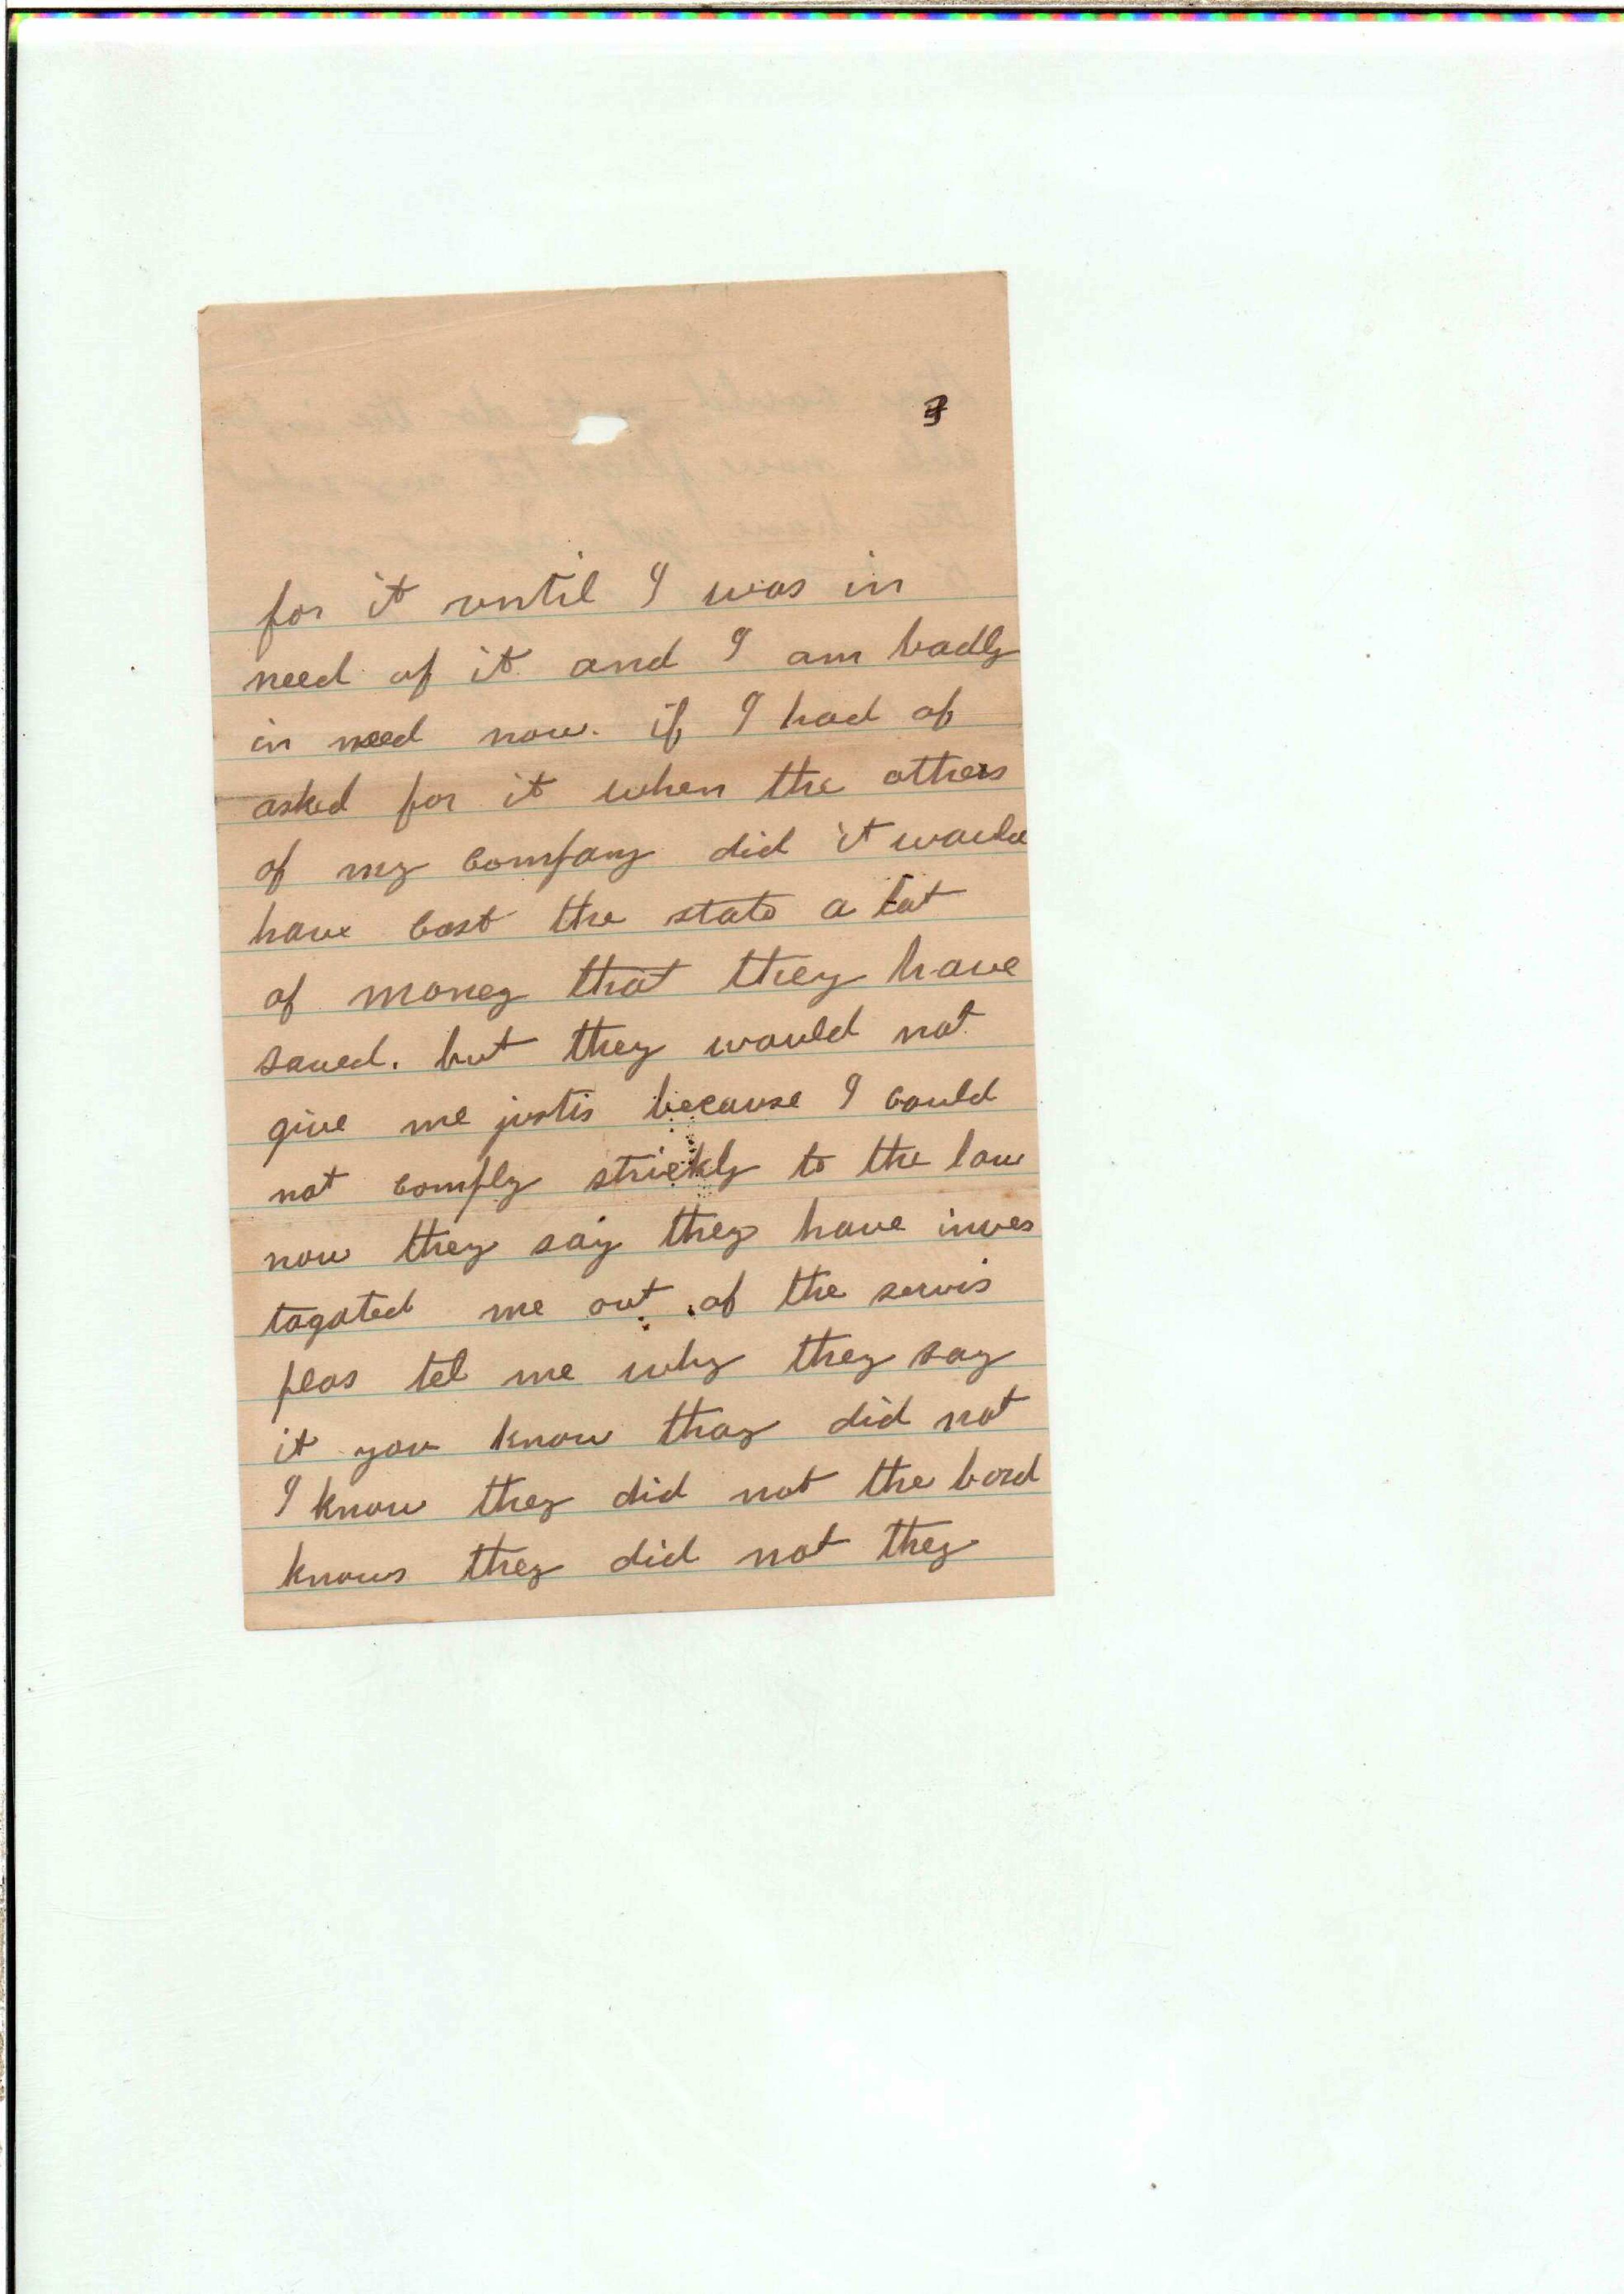 3
for it until I was in
need of it and I am badly
in need now. if I had of
asked for it when the others
of my company did it would
have cost the state a lot
of money that they have
saved. but they would not
give me justis because I could
not comply strickly to the law
now they say they have inves
tagated me out of the servis
pleas tel me why they say
it you know thay did not
I know they did not the bord
knows they did not they